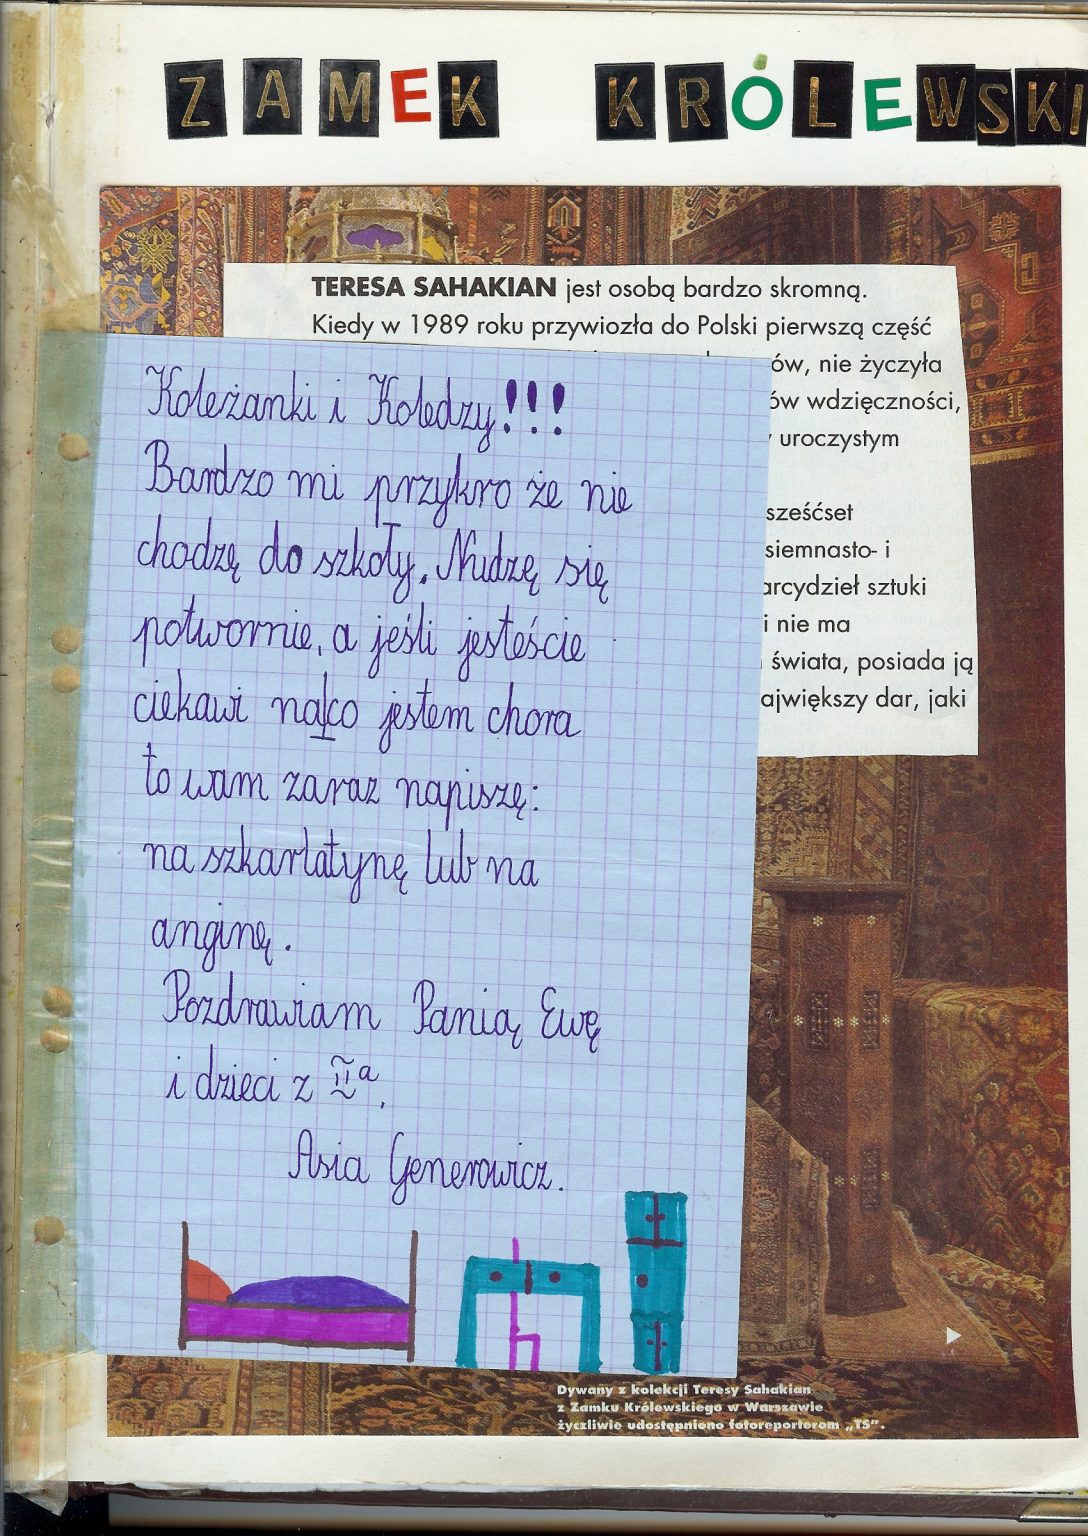 ZAMEK KRÓLEWSKI
TERESA SAHAKIAN jest osobą bardzo skromną.
Kiedy w 1989 roku przywiozła do Polski pierwszą część
ów, nie życzyła
ów wdzięczności,
uroczystym
sześćset
siemnasto- i
arcydzieł sztuki
i nie ma
świata, posiada ją
ajwiększy dar, jaki
Koleżanki i Koledzy!!!
Bardzo mi przykro że nie
chodzę do szkoły. Nudzę się
potwornie, a jeśli jesteście
ciekawi na co jestem chora
to wam zaraz napiszę:
na szkarlatynę lub na
anginę.
Pozdrawiam Panią Ewę
i dzieci z IIa.
Asia Generowicz.
Dywany z kolekcji Teresy Sahakian
z Zamku Królewskiego w Warszawie
życzliwie udostępniono fotoreporterom „TS".